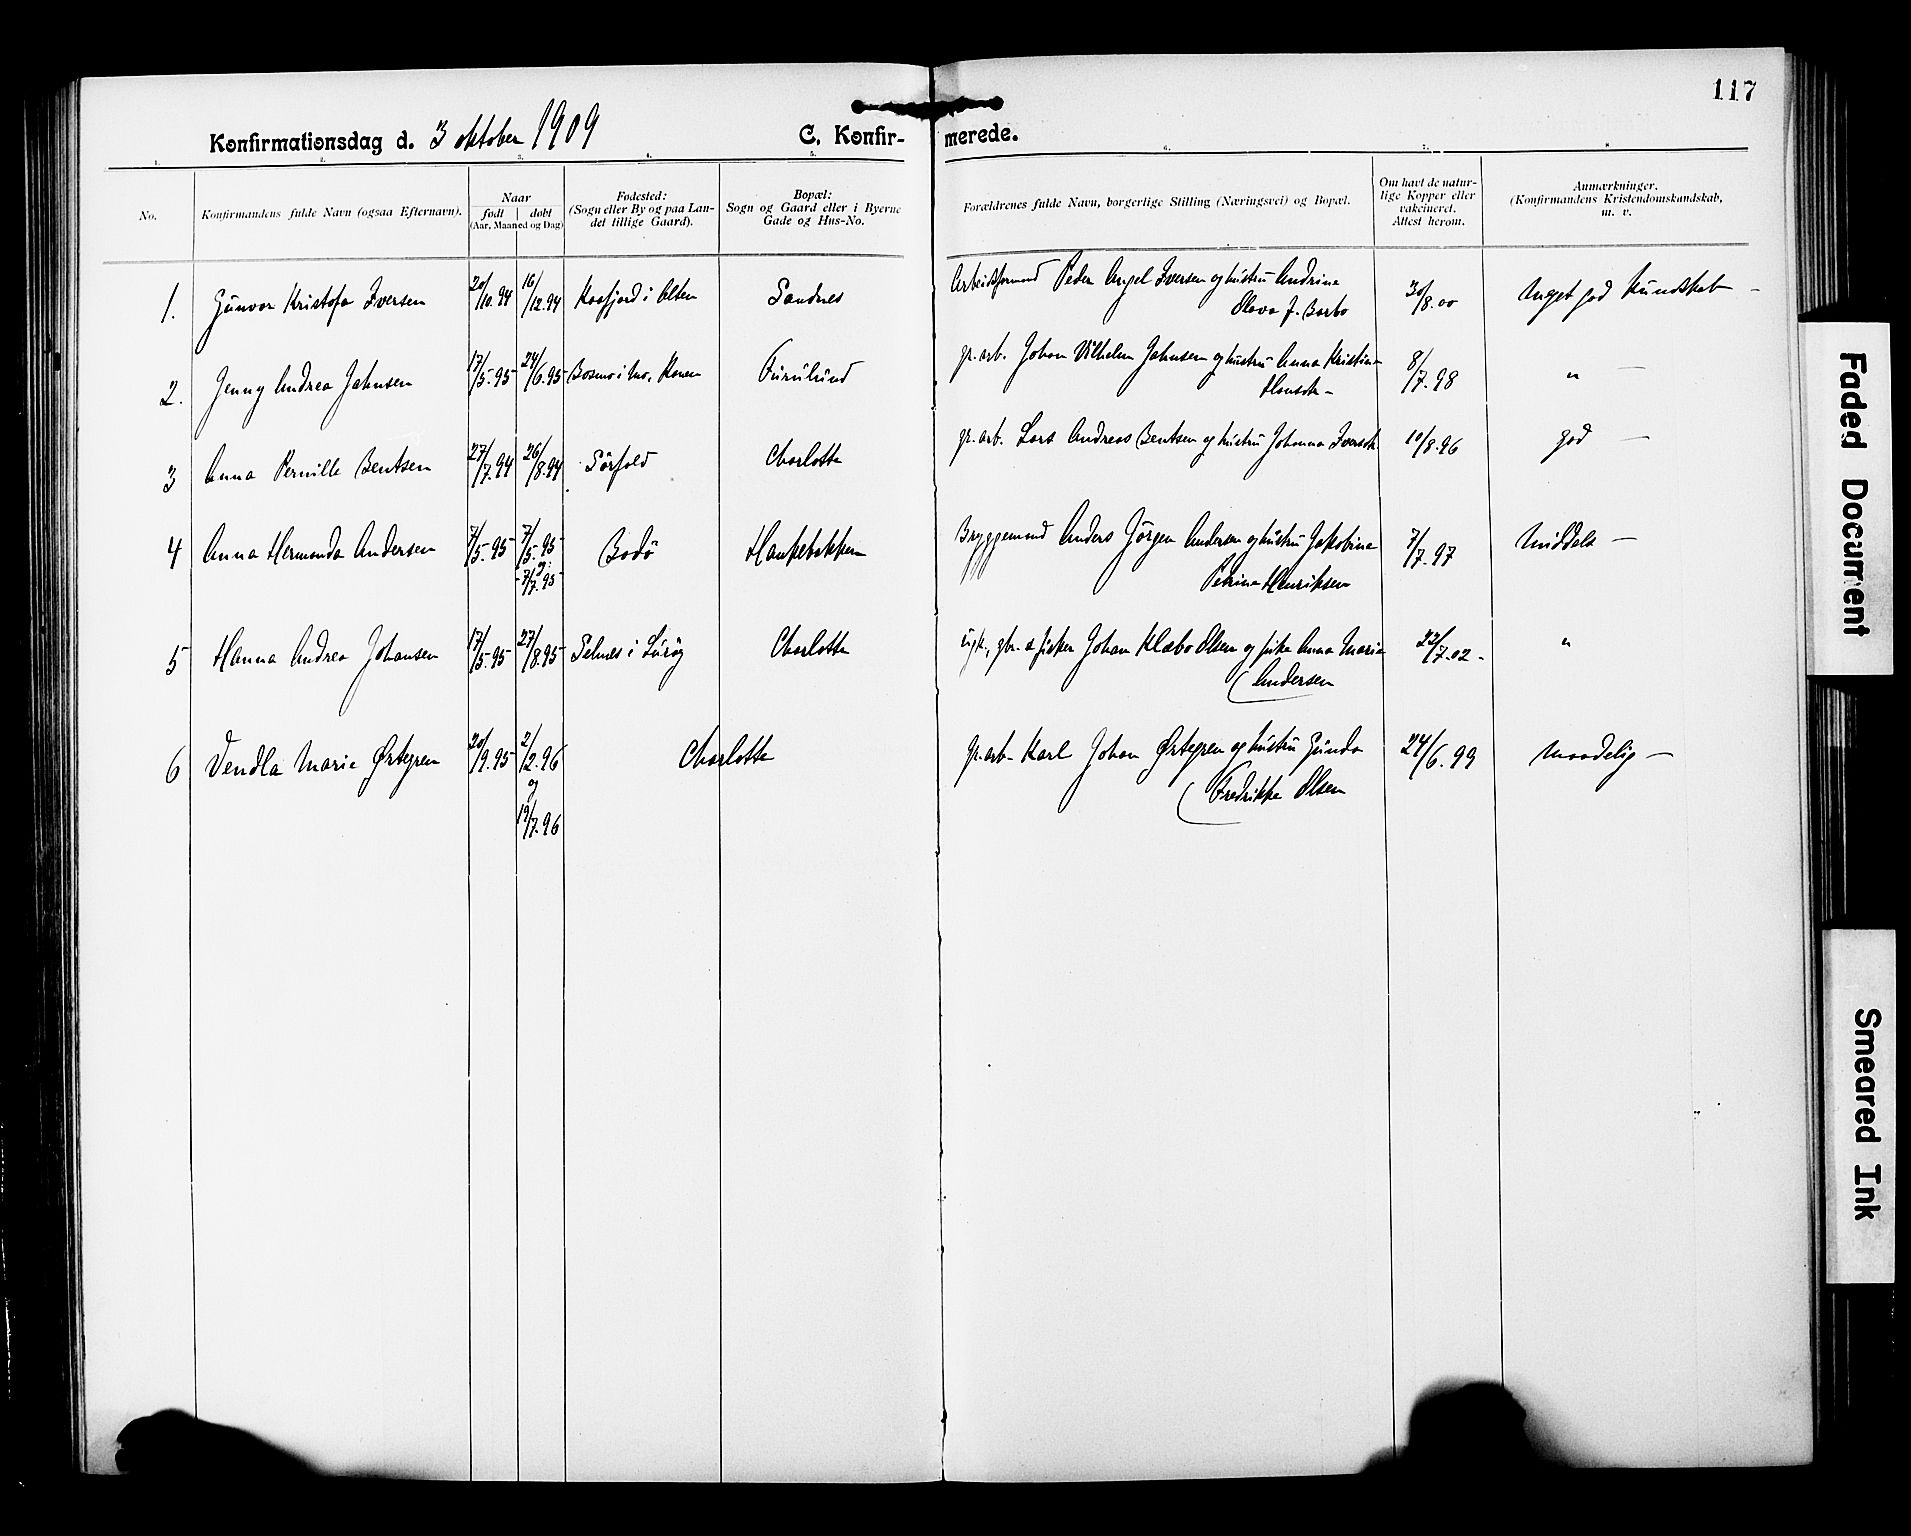 117
Konfirmationsdag d. 3 oktober 1909
C. Konfirmerede.
1. 2. 3. 4. 5. 6. 7. 8
No.
Konfirmandens fulde Navn (ogsaa Efternavn).
Naar
født døbt
(Aar, Maaned og Dag)
Fødested:
(Sogn eller By og paa Lan-
det tillige Gaard).
Bopæl:
Sogn og Gaard eller i Byerne
Gade og Hus-No.
Forældrenes fulde Navn, borgerlige Stilling (Næringsvei) og Bopæl.
Om havt de natur-
lige Kopper eller
vakcineret.
Attest herom.
Anmærkninger.
(Konfirmandens Kristendomskundskab,
m. v.
1. Gunvor Kristofa Iversen 20/10.94 16/12.94 Kaafjord i Alten Sandnes Arbeidsformand Peder Angel Iversen og hustru Andrine 30/8.00 Meget god kundskab —
Olava J. Barbo
2. Jenny Andrea Jahnsen 17/5.95 24/6.95 Bosmo i Mo, Ranen Furulund gr. arb. Johan Vilhelm Jahnsen og hustru Anna Kristine 8/7.98 " —
Hansdt. —
3 Anna Pernille Bentsen 27/7.94 26/8.94 Sörfold Charlotta gr. arb. Lars Andreas Bentsen og hustru Johanna Iversdt. 10/8.96 god —
4 Anna Hermanda Andersen 7/5.95 7/5.95 Bodö Hankebakken Bryggemand Anders Jörgen Andersen og hustru Jakobine 7/7.97 Middels —
og
7/7.95
Petrine Henriksen
5 Hanna Andrea Johansen 17/5.95 27/8.95 Selnes i Luröy Charlotta ugk., gbr. & fisker Johan Klæbo Olsen og pike Anna Marie 22/7.02 — "
( Andersen
6 Vendla MarieØrtegren 20/9.95 2/2.96 Charlotta gr. arb. Karl Johan Ørtegren og hustru Gunda 24/6.99 Maadelig —
og
( Fredrikke Olsen
19/7.96
Faded Document
Smeared Ink